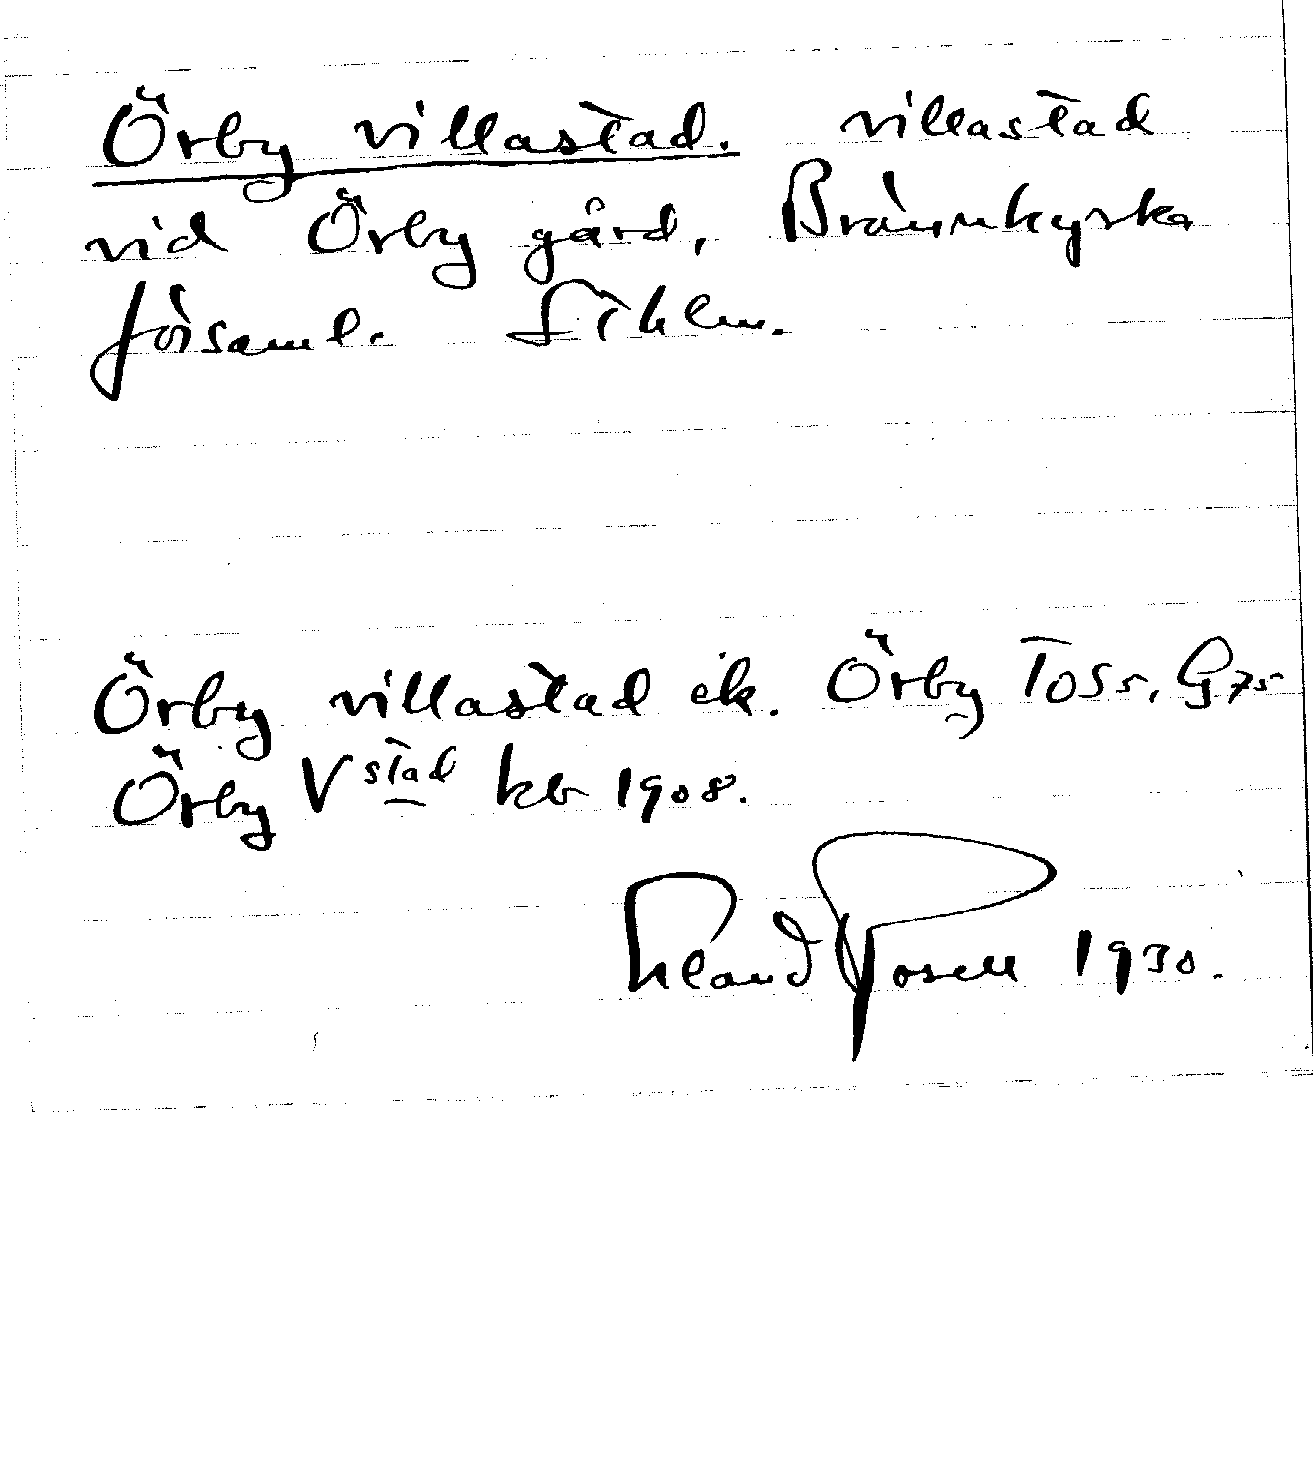 Örby villastad. villastad
vid Örby gård, Brännkyrka
församl. Sthlm.
Örby villastad ek. Örby TOS 5, G 75
Örby Vstad kb 1908.
Erland Rosell 1930.